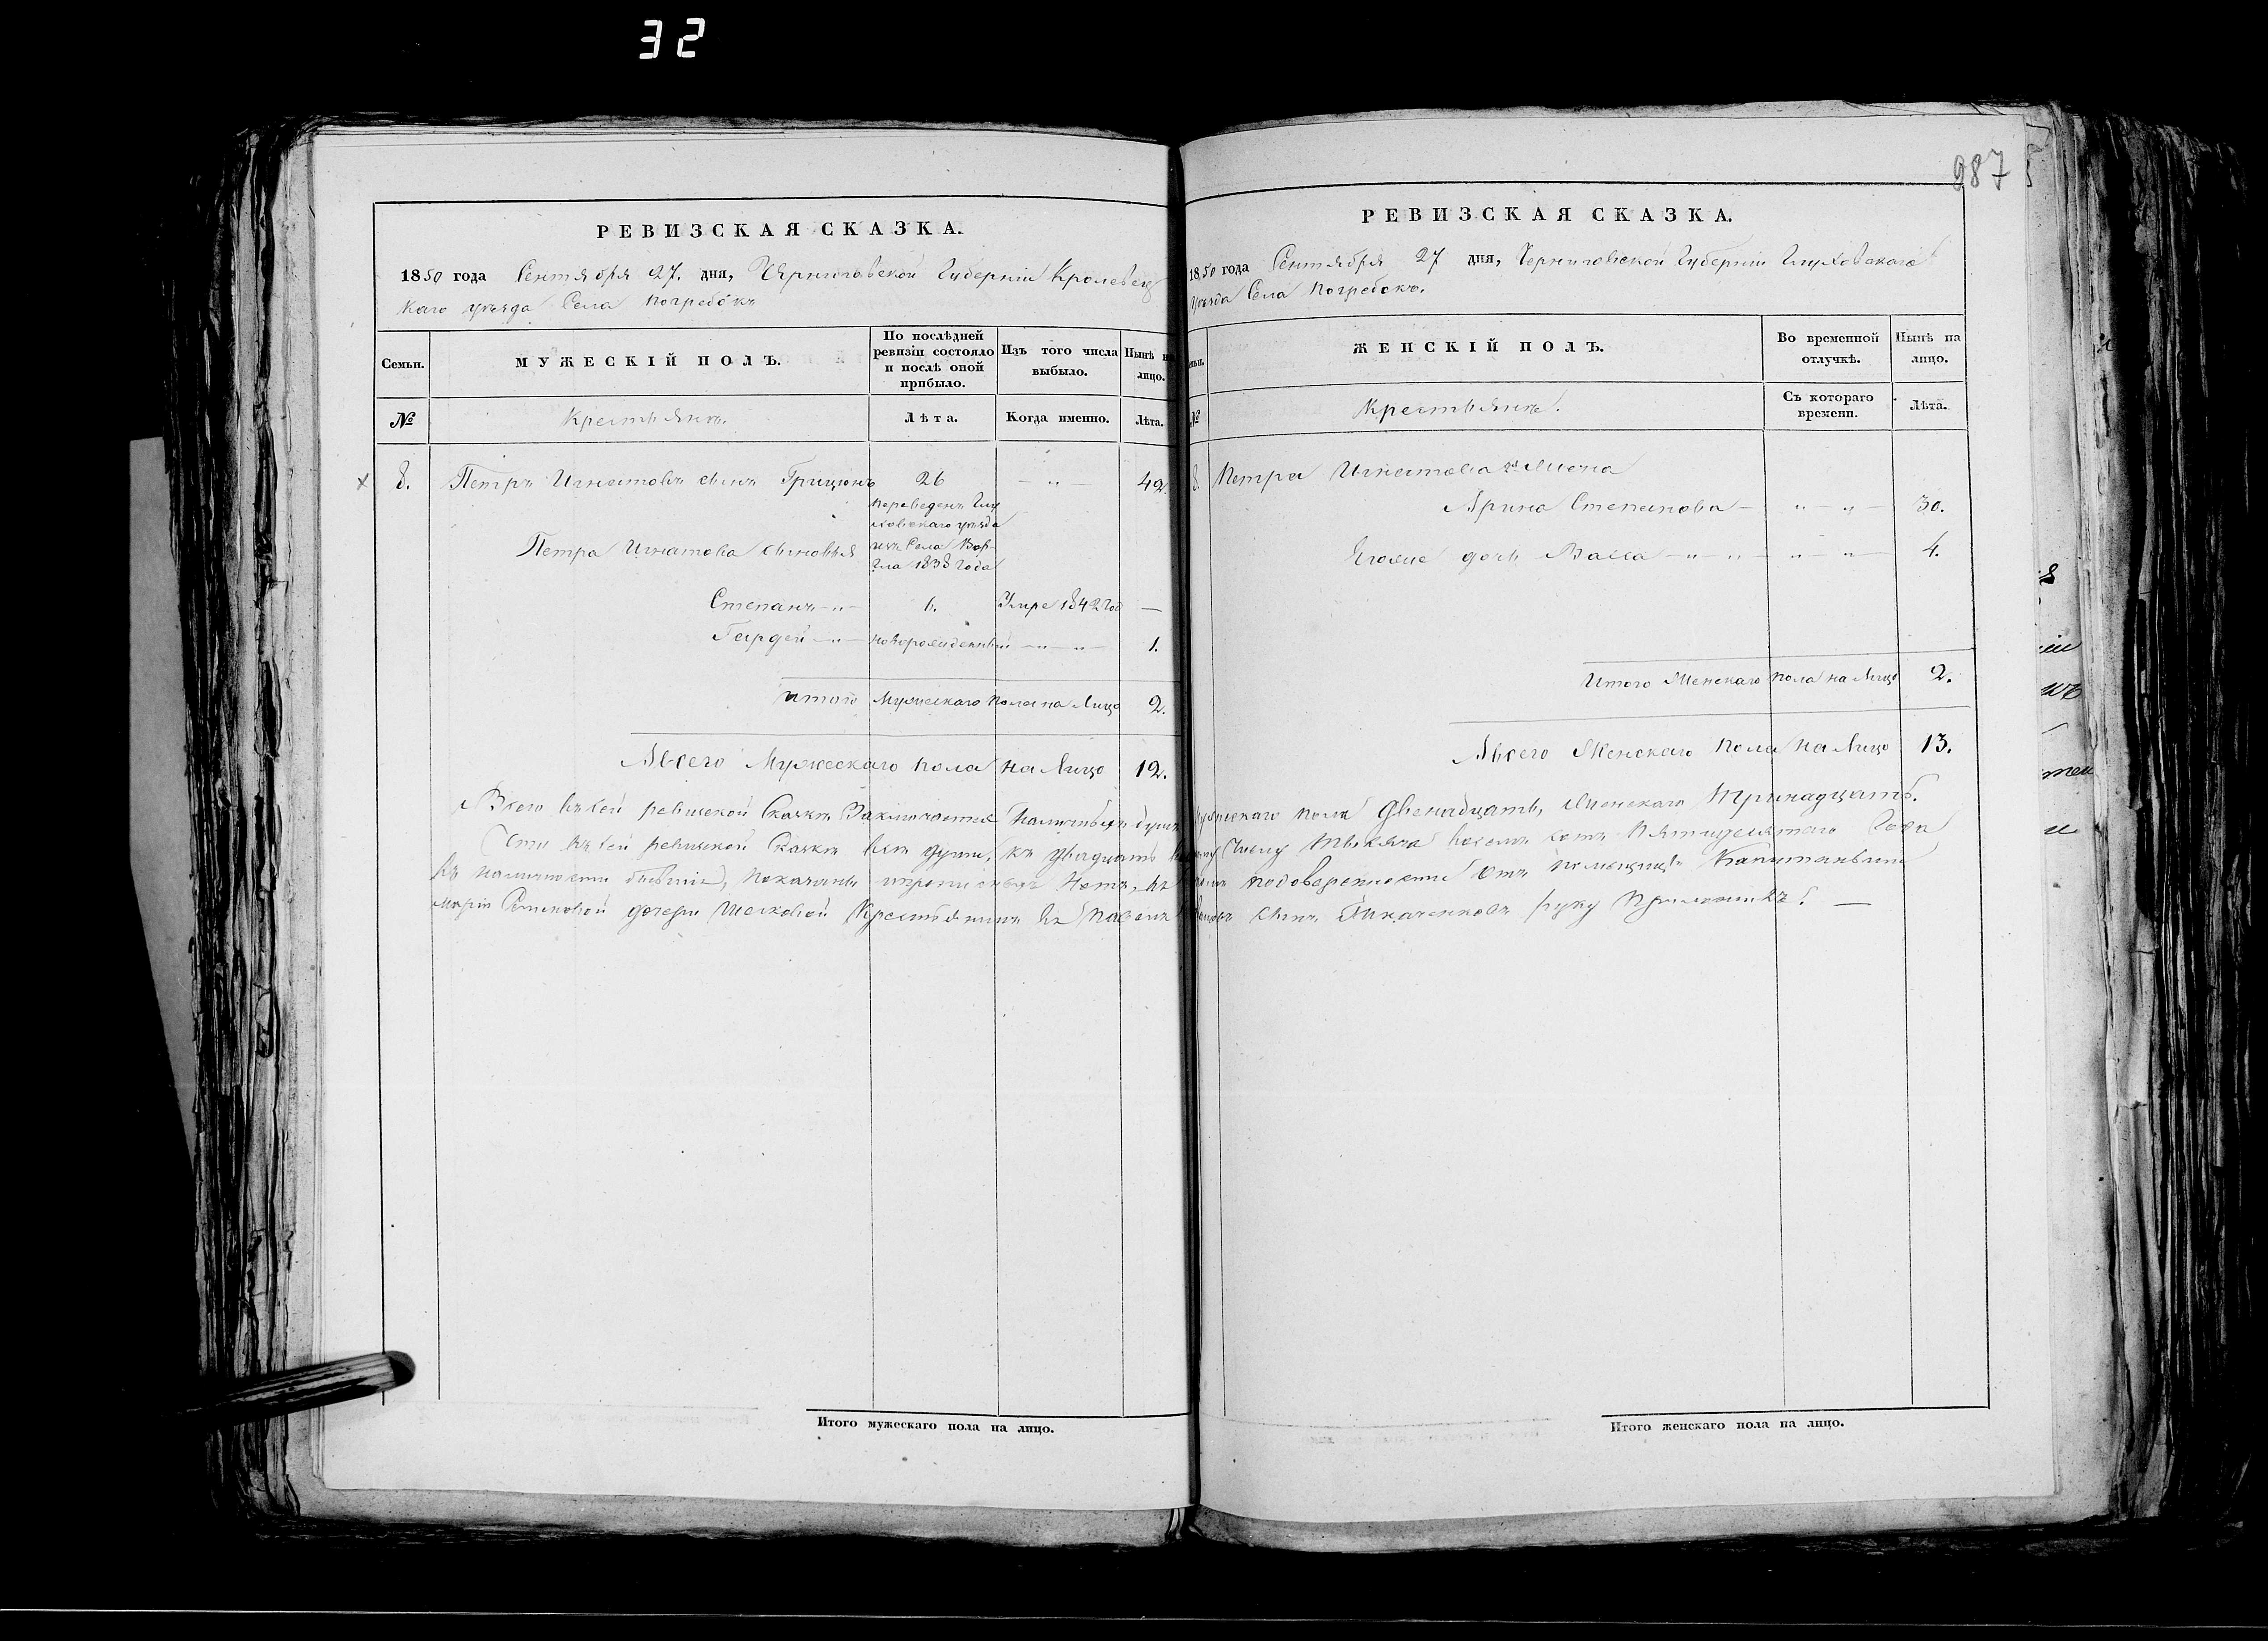 32
РЕВИЗСКАЯ СКАЗКА.
1850 года Сентября 27. дня, Черниговской Губерніи Кролевец
каго уѣзда Села Погребокъ
Семьи.
МУЖЕСКІЙ ПОЛЪ.
По послѣдней
ревизіи состояло
и послѣ оной
прибыло.
Изъ того числа
выбыло.
Нынѣ на
лицо.
№
Крестьянъ.
Лѣта.
Когда именно.
Лѣта.
8. Петръ Игнатовъ сынъ Грицюнъ 26 — „ — 42.
переведенъ Глу
ховскаго уѣзда
изъ Села Вор-
гла 1838 года
Петра Игнатова сыновья
Степанъ — „ — 6. Умре 1842 год —
Гардей — „ — новорожденный — „ — „ — 1.
Итого Мужескаго пола на Лицо 2.
Авсего Мужескаго пола на Лицо 12.
987
РЕВИЗСКАЯ СКАЗКА.
1850 года Сентября 27 дня, Черниговской Губерніи Глуховскаго
уѣзда Села Погребокъ.
ЖЕНСКІЙ ПОЛЪ.
Во временной
отлучкѣ.
Нынѣ на
лицо.
№
Крестьянъ.
Съ котораго
времени.
Лѣта.
8. Петра Игнатова жена
Арина Степанова — „ — „ — 30.
Егоже дочь Васса — „ — „ — „ — „ — 4.
Итого Женскаго пола на Лицо 2.
Авсего Женскаго пола на Лицо 13.
Всего въ сей ревизской Сказкѣ Заключается Наличныхъ душъ мужескаго пола двенадцать, женскаго Тринадцать.
Что въ сей ревизской Сказкѣ всѣ души, къ двадцать числу тысяча восемь сотъ пятидесятаго Года
въ наличности бывшіе, показаны и прописныхъ Нетъ, въ подоверенности отъ помещицы Капитанъши
Маріи дочери Крестьянинъ Ея Павелъ сынъ Ткаченковъ руку Приложилъ. —
Итого мужескаго пола на лицо.
Итого женскаго пола на лицо.